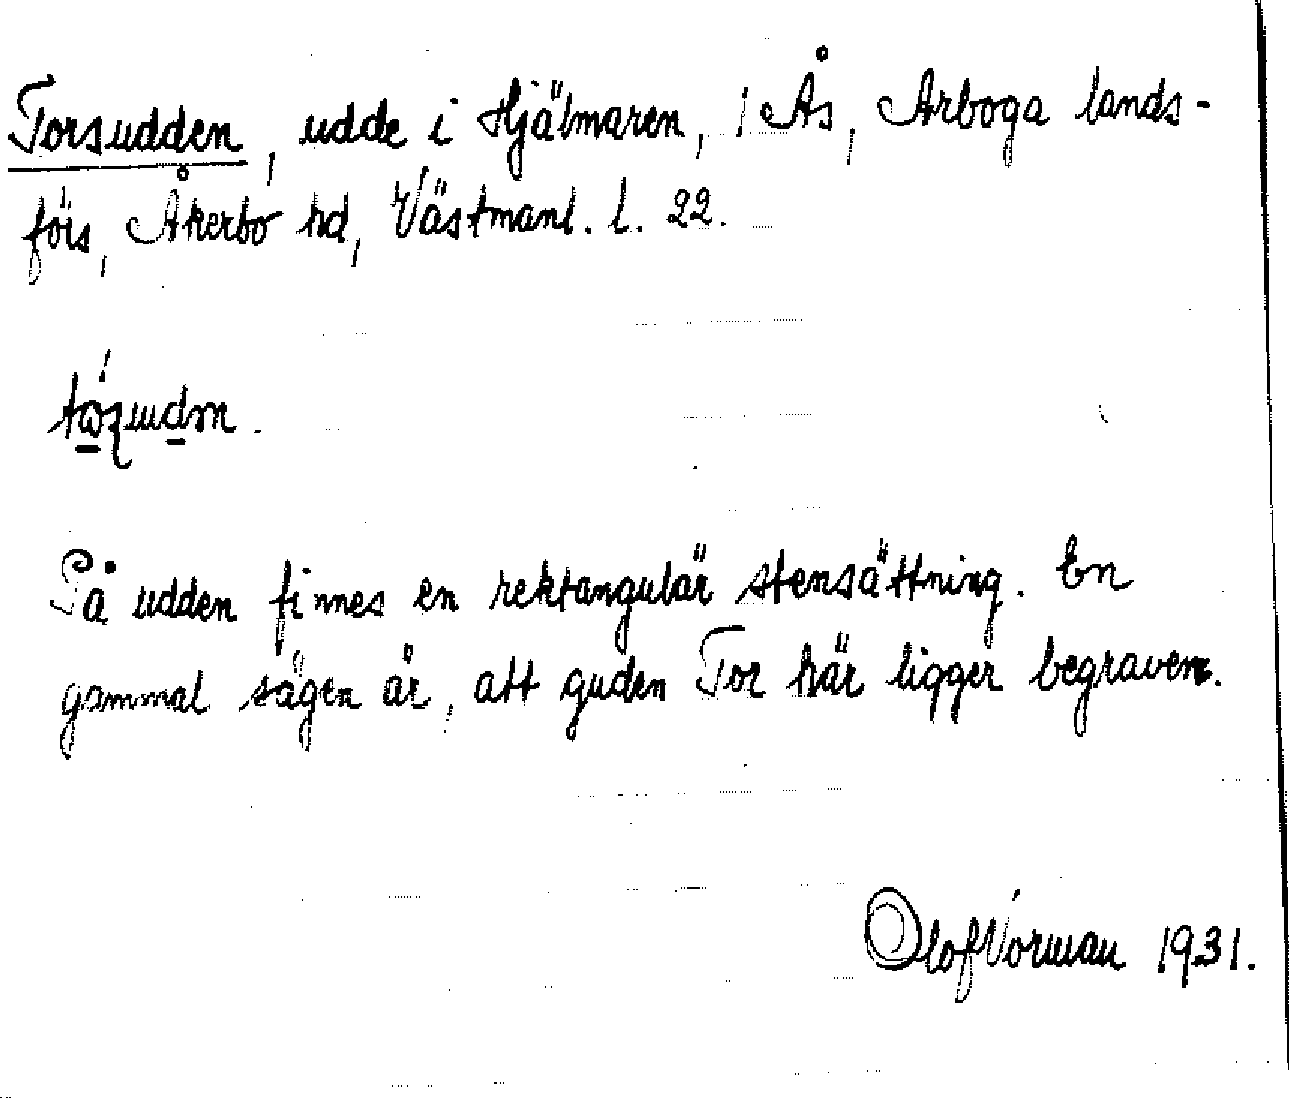 Torsudden, udde i Hjälmaren, i Ås, Arboga lands-
förs, Åkerbo hd, Västmanl. l. 22.
På udden finnes en rektangulär stensättning. En
gammal sägen är, att guden Tor här ligger begraven.
Olof Vorman 1931.